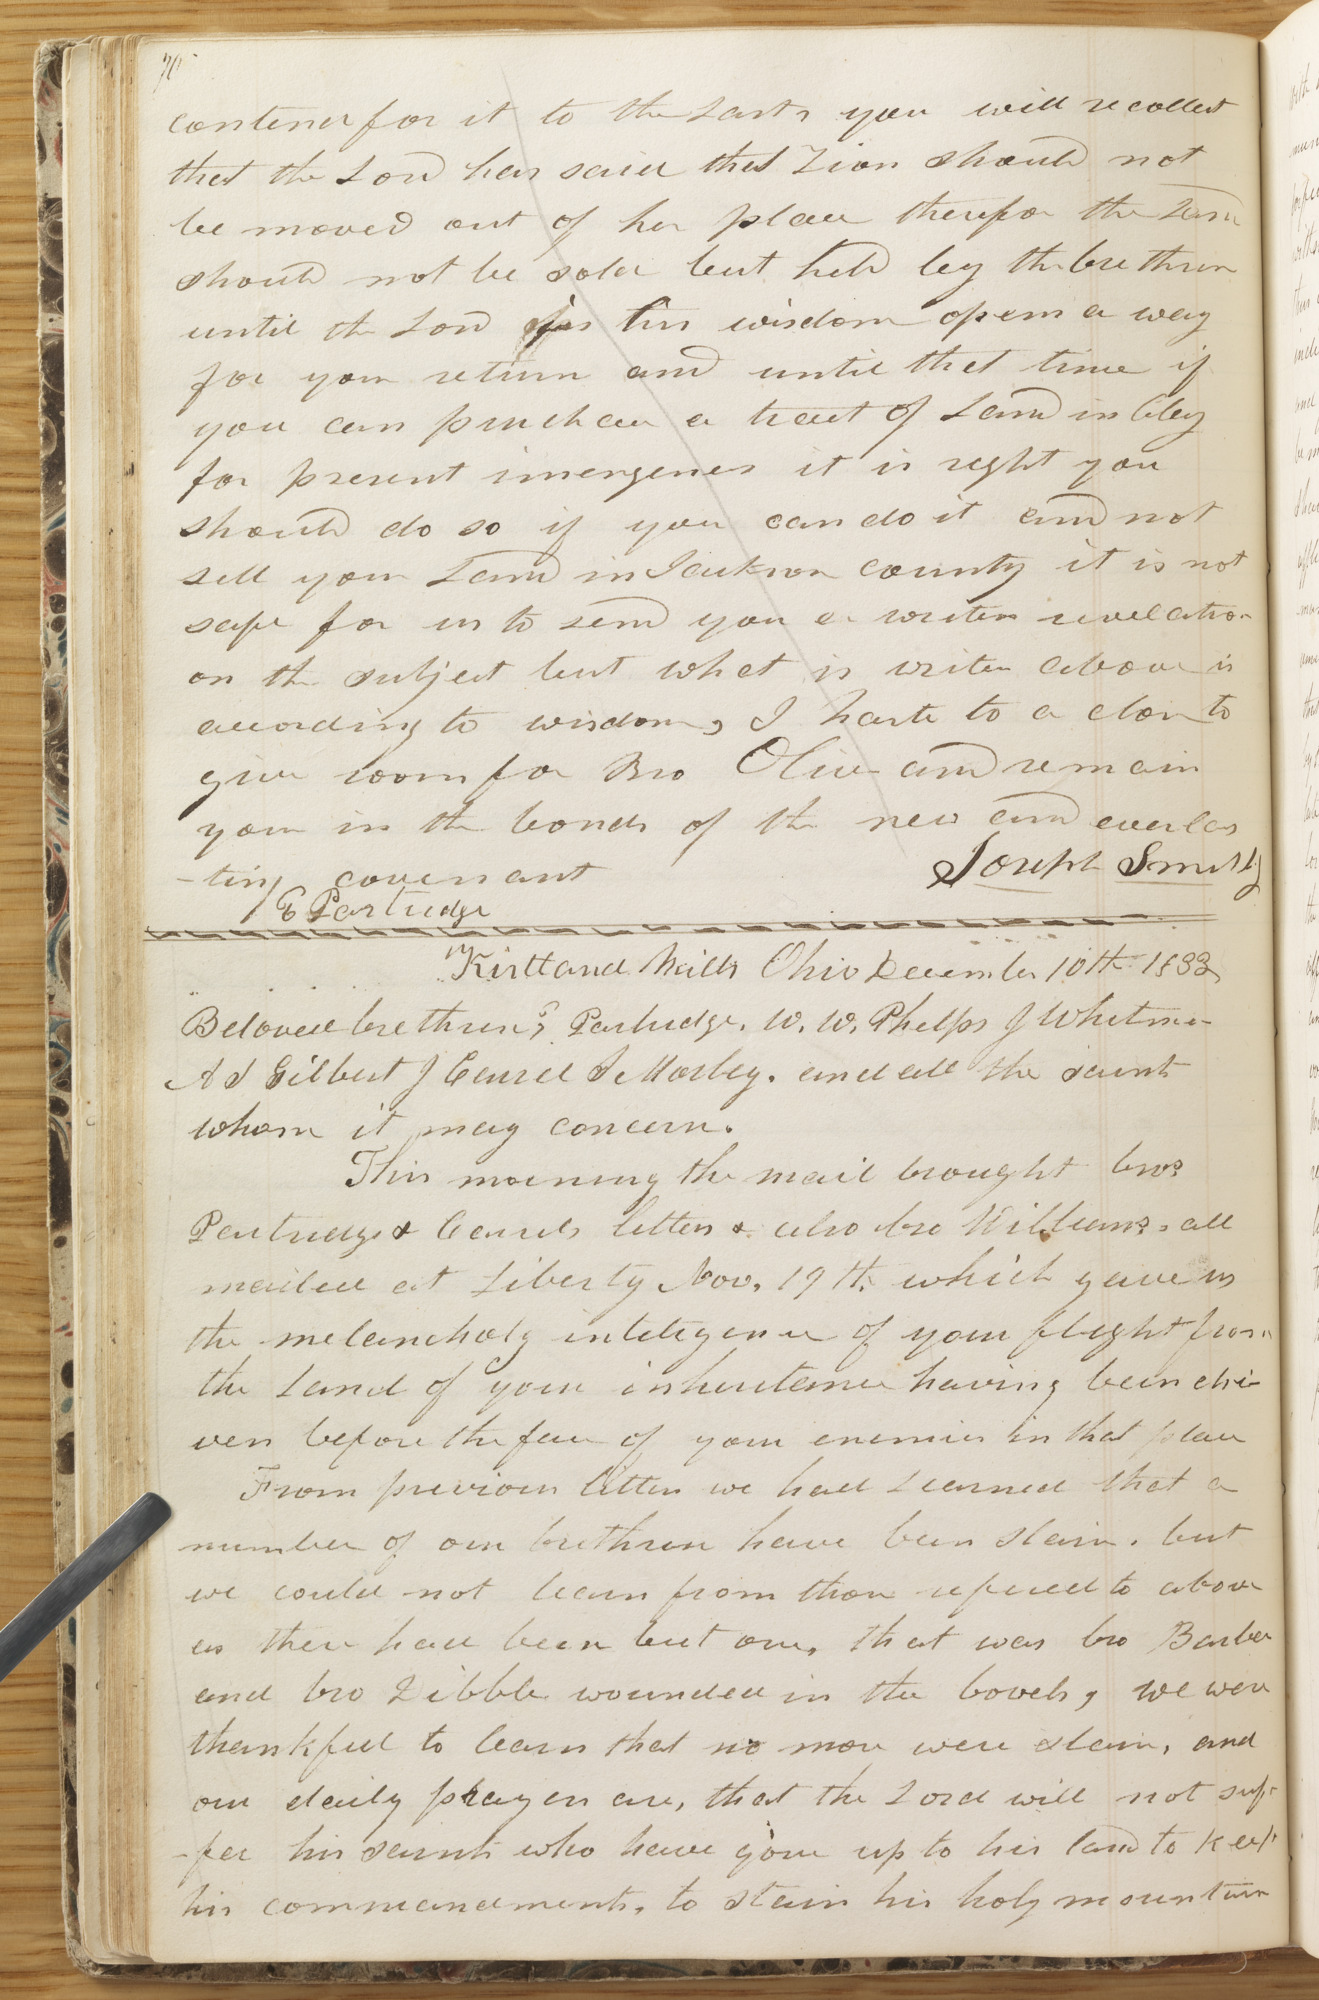 70
contend for it to the Last, you will recollect
that the Lord has said that Zion should not
be moved out of her place therefor the Land
should not be sold but held by the brethren
until the Lord in his wisdom opens a way
for your return and until that time if
you can purchase a tract of Land in Clay
for present imergenies it is right you
should do so if you can do it and not
sell your Land in Jackson county it is not
safe for us to send you a writen revelation
on the subject but what is writen above is
according to wisdom, I haste to a close to
give room for Bro Oliver and remain
yours in the bonds of the new and everlas
-ting covenant
Joseph Smith Jr
E Partridge
Kirtland Mills Ohio December 10th 1833
Beloved brethren, E Partridge, W. W. Phelps J Whitmer
A S Gilbert J Corril I Morley. and all the saints
whom it may concern.
This morning the mail brought bros.
Partridge & Corrils letters & also bro Williams. all
mailed at Liberty Nov. 19th. which gave us
the melancholy inteligence of your flight from
the Land of your inheritance having been dri-
ven before the face of your enemies in that place
From previous letters we had Learned that a
number of our brethren have been slain. but
we could not learn from those refered to above
as there had been but one, that was bro Barber
and bro Dibble wounded in the bowels, we were
thankful to learn that no more were slain, and
our daily prayers are, that the Lord will not suf-
-fer his saints who have gone up to his land to keep
his commandments, to stain his holy mountain